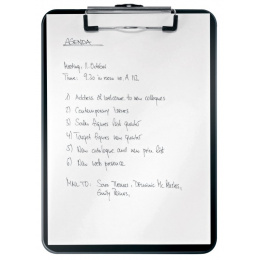 AGENDA
Meeting: 11. October
Time: 9.30 in room at A 112
1) Address of welcome to new collegues
2) Contemporary
3) Sales figures last quarter
4) Target figures new quarter
5) New catalogue and new price list
6) New web presence
MAIL TO: Sam Thomas, Dominic Mc
Emily